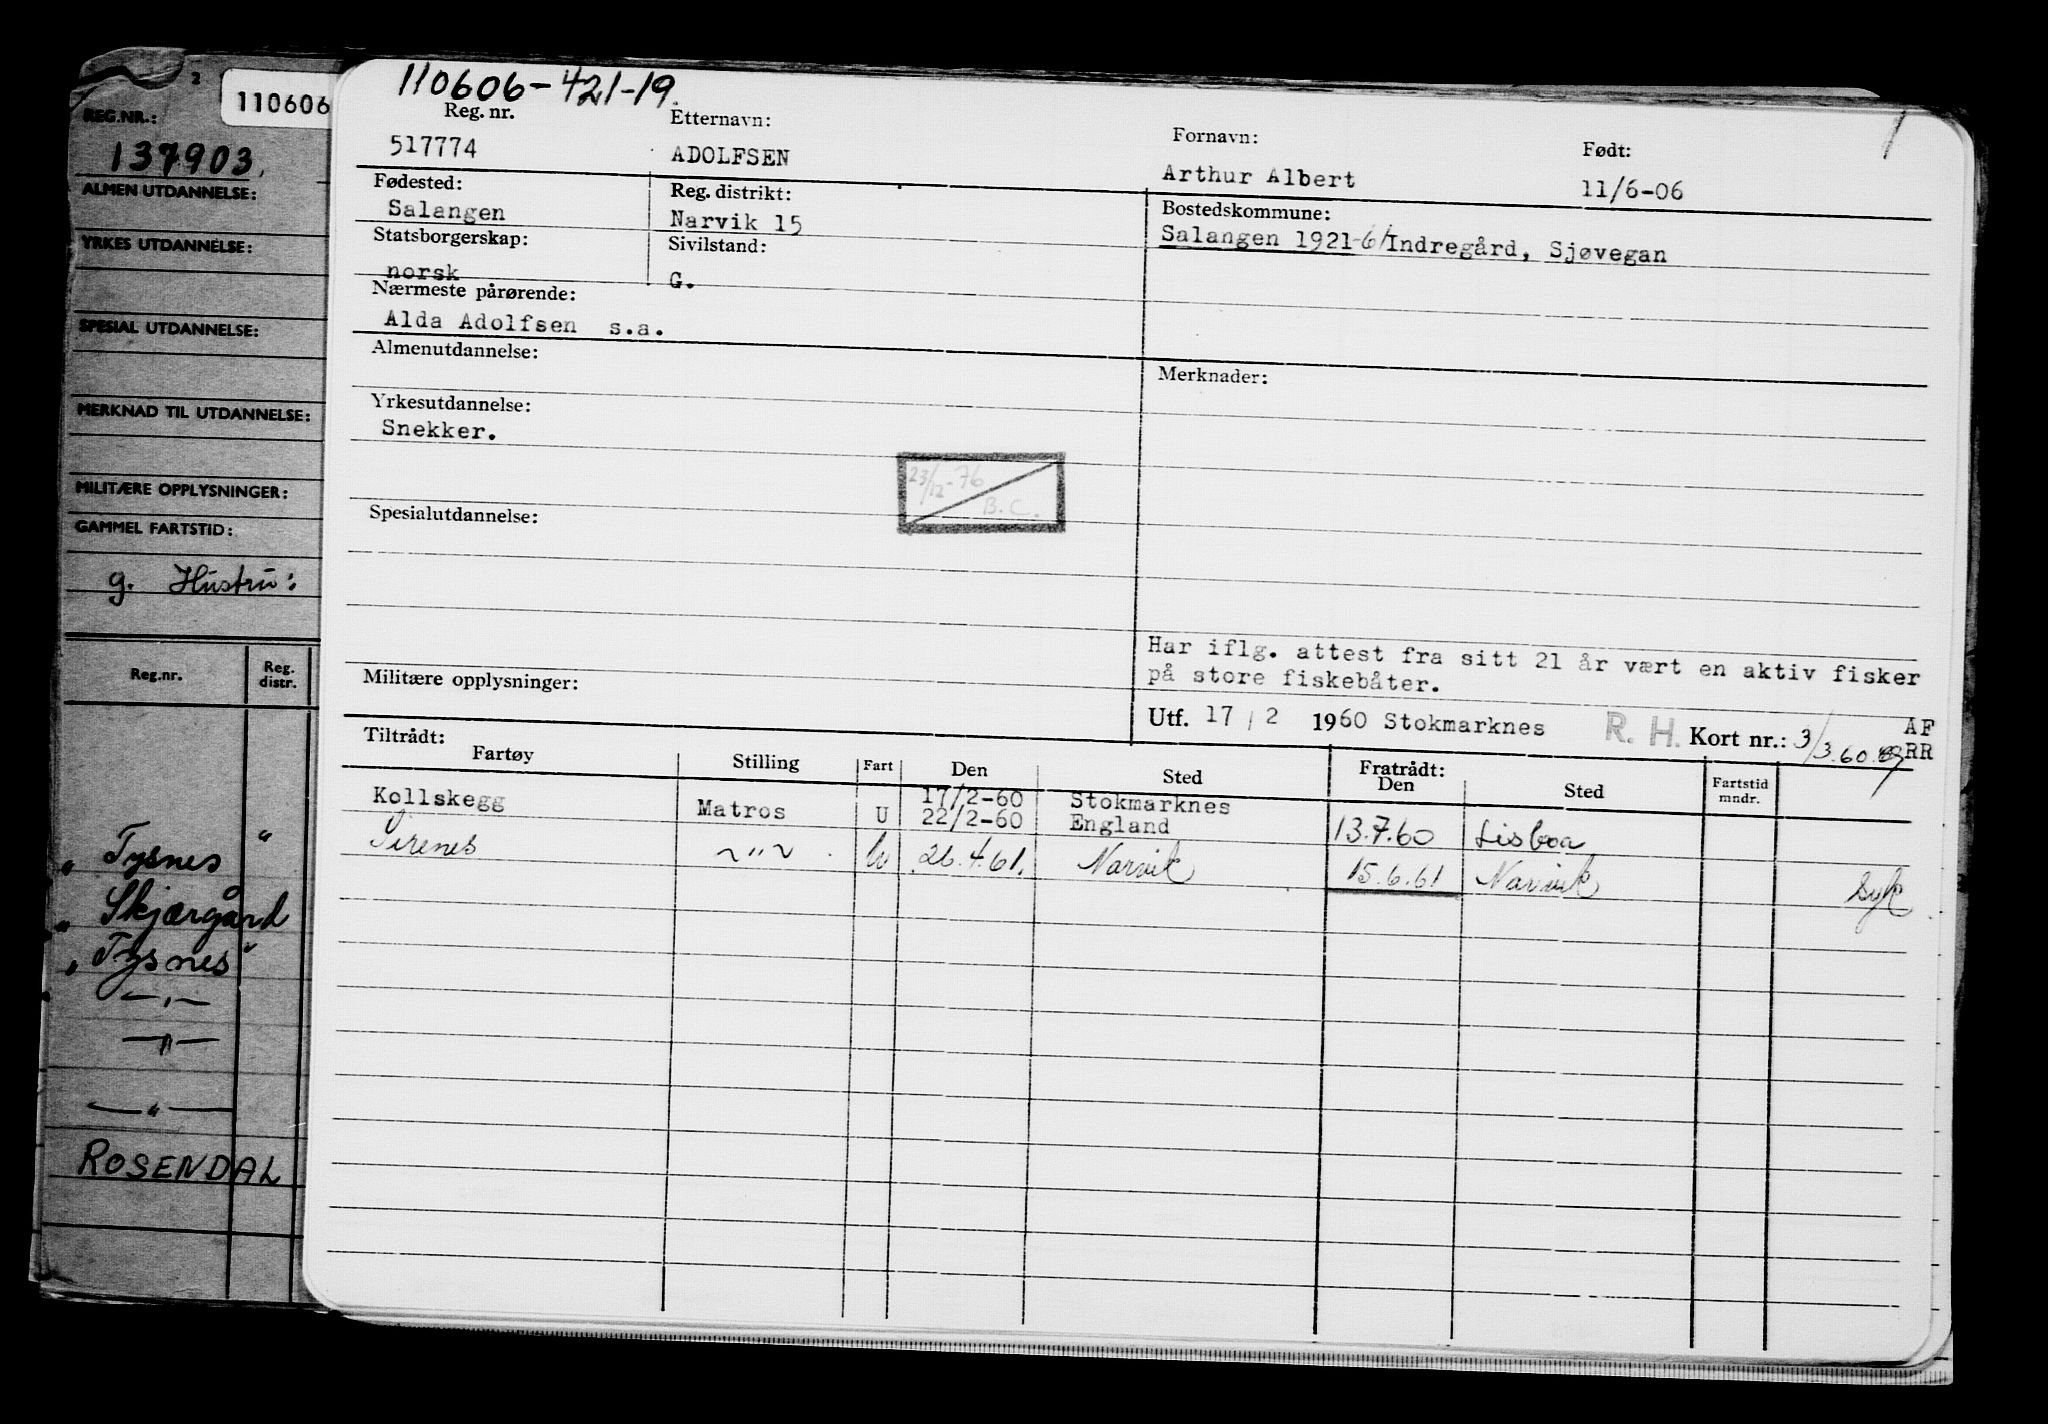 2
110606
REG.NR.:
137903.
ALMEN UTDANNELSE:
YRKES UTDANNELSE:
SPESIAL UTDANNELSE:
MERKNAD TIL UTDANNELSE:
MILITÆRE OPPLYSNINGER:
GAMMEL FARTSTID:
g. Hustru:
Reg.nr. Reg. distr.
„ Tysnes "
„ Skjærgård
„ Tysnes "
—„—
—„—
—„—
ROSENDAL
110606-421-19.
1
Reg. nr. Etternavn: Fornavn: Født:
517774 ADOLFSEN Arthur Albert 11/6-06
Fødested: Reg. distrikt: Bostedskommune:
Salangen Narvik 15 Salangen 1921-61 Indregård, Sjøvegan
Statsborgerskap: Sivilstand:
norsk G.
Nærmeste pårørende:
Alda Adolfsen s.a.
Almenutdannelse: Merknader:
Yrkesutdannelse:
Snekker.
23/12-76
B.C.
Spesialutdannelse:
Har iflg. attest fra sitt 21 år vært en aktiv fisker
på store fiskebåter.
Militære opplysninger:
Utf. 17 / 2 1960 Stokmarknes R. H. Kort nr.: 3/3.60. AF
RR
Tiltrådt: Fratrådt:
Fartøy Stilling Fart Den Sted Den Sted Fartstid mndr.
Kollskegg Matros U 17/2-60 Stokmarknes
22/2-60 England 13.7.60 Lisboa
Sirenes ~"~ 26.4.61. Narvik 15.6.61 Narvik Syk